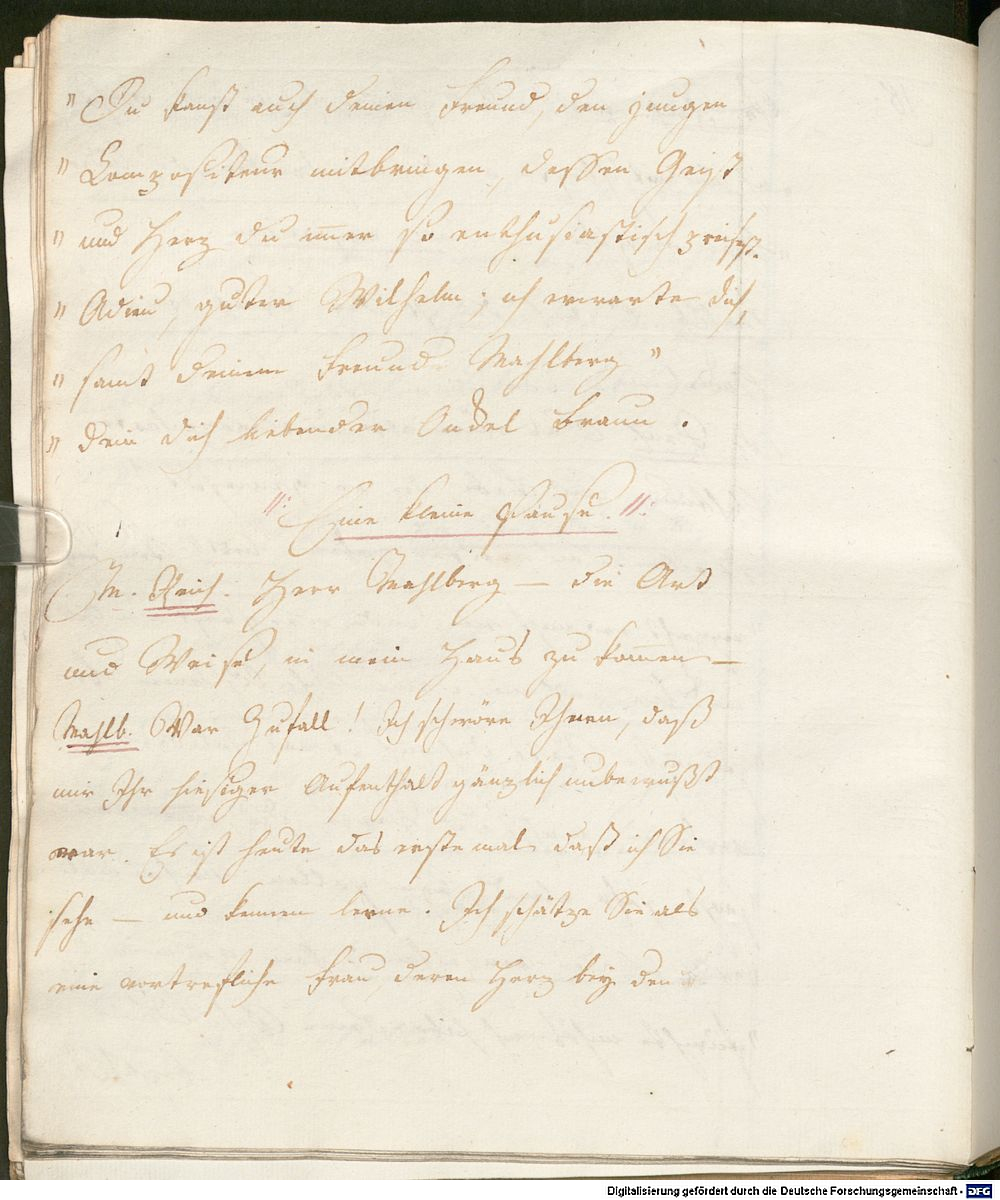 " Du kanst auch deinen Freund, den jungen
" Compositeur mitbringen, dessen Geist
" und Herz du im̅er so enthusiastisch preisest.
" Adieu, guter Wilhelm; ich erwarte dich,
" samt deinem Freund Wahlberg "
" dein dich liebender Onckel Braun.
//: Eine kleine Pause. //:
M. Reich. Herr Wahlberg — die Art
und Weise, in mein Haus zu kom̅en —
Wahlb. War Zufall! Ich schwöre Ihnen, daß
mir Ihr hiesiger Aufenthalt gänzlich unbewußt
war. Es ist heute das erste mal daß ich Sie
sehe — und kennen lerne. Ich schätze Sie als
eine vortrefliche Frau, deren Herz bey den
Digitalisierung gefördert durch die Deutsche Forschungsgemeinschaft - DFG